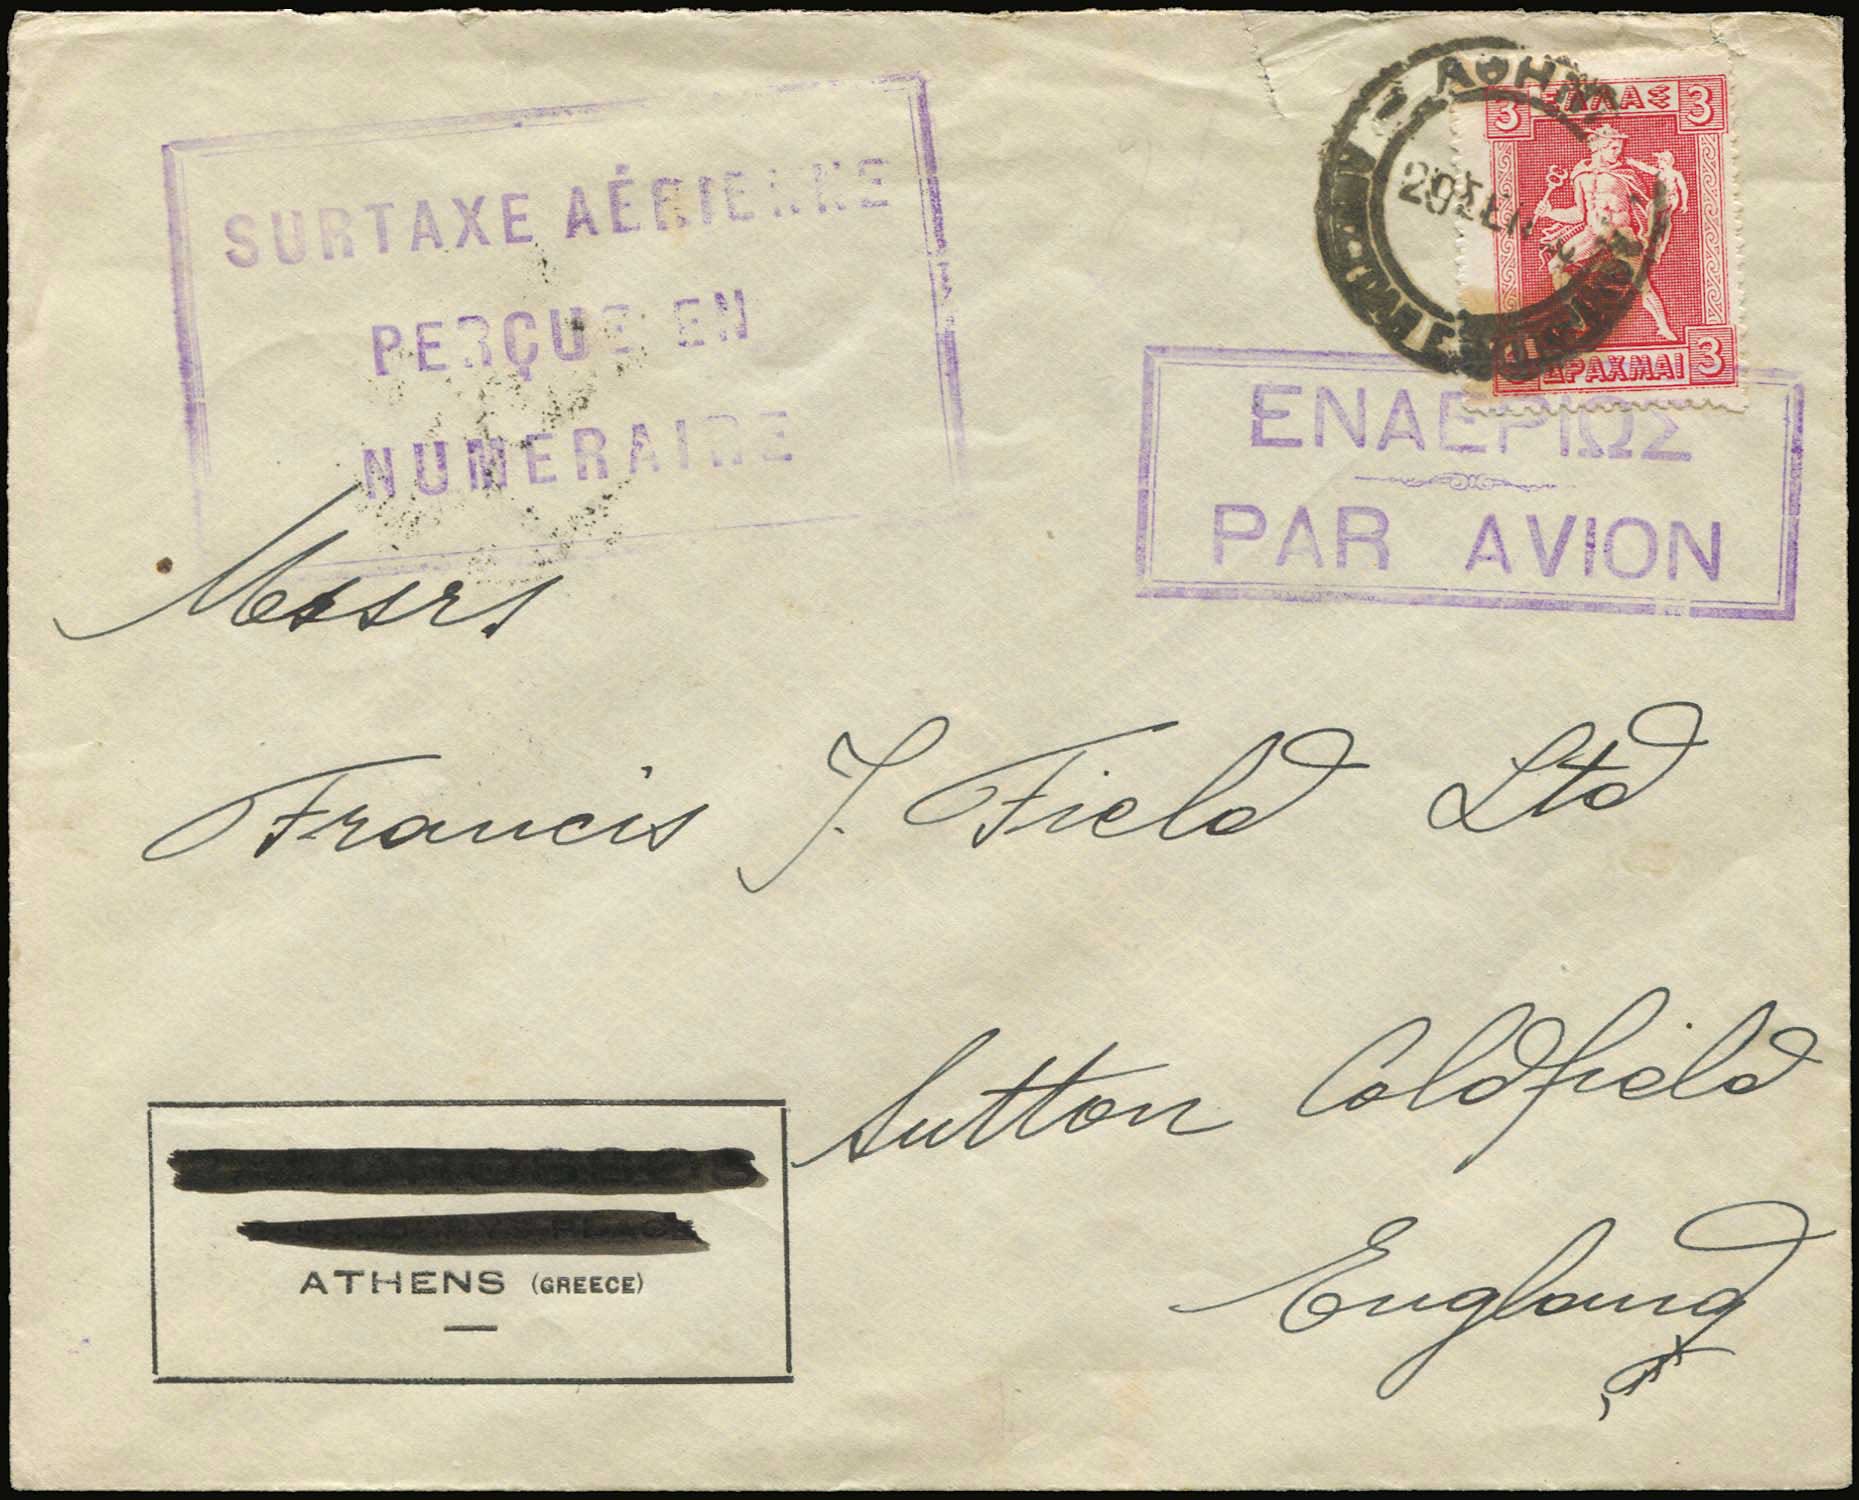 SURTAXE AÉRIENNE
PERÇUE EN
NUMERAIRE
ΑΘΗΝΑΙ
ΕΛΛΑΣ
3 3
ΔΡΑΧΜΑΙ 3
ΕΝΑΕΡΙΩΣ
PAR AVION
Messrs
Francis J. Field Ltd
Sutton Coldfield
England
ATHENS (GREECE)